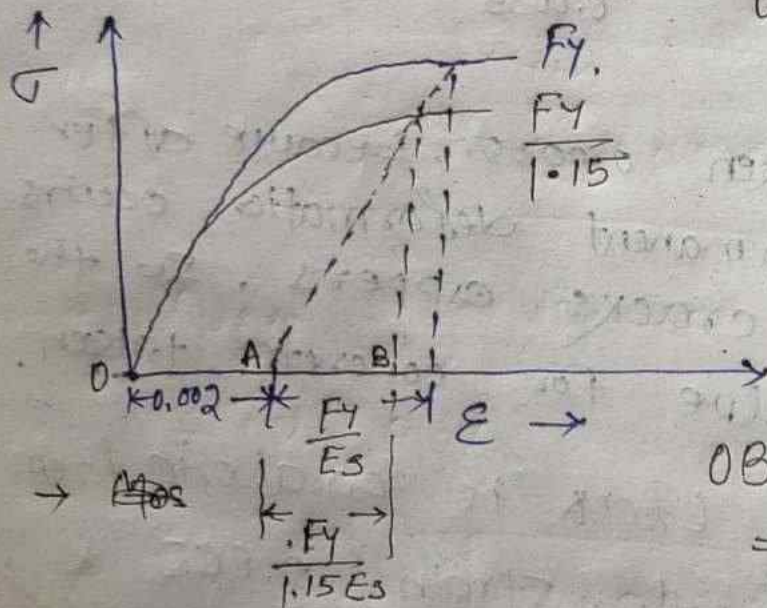 ↑
σ
Fy.
Fy
1.15
O
A
B
0.002
Fy
Es
ε →
OB
→
=
Fy
1.15Es